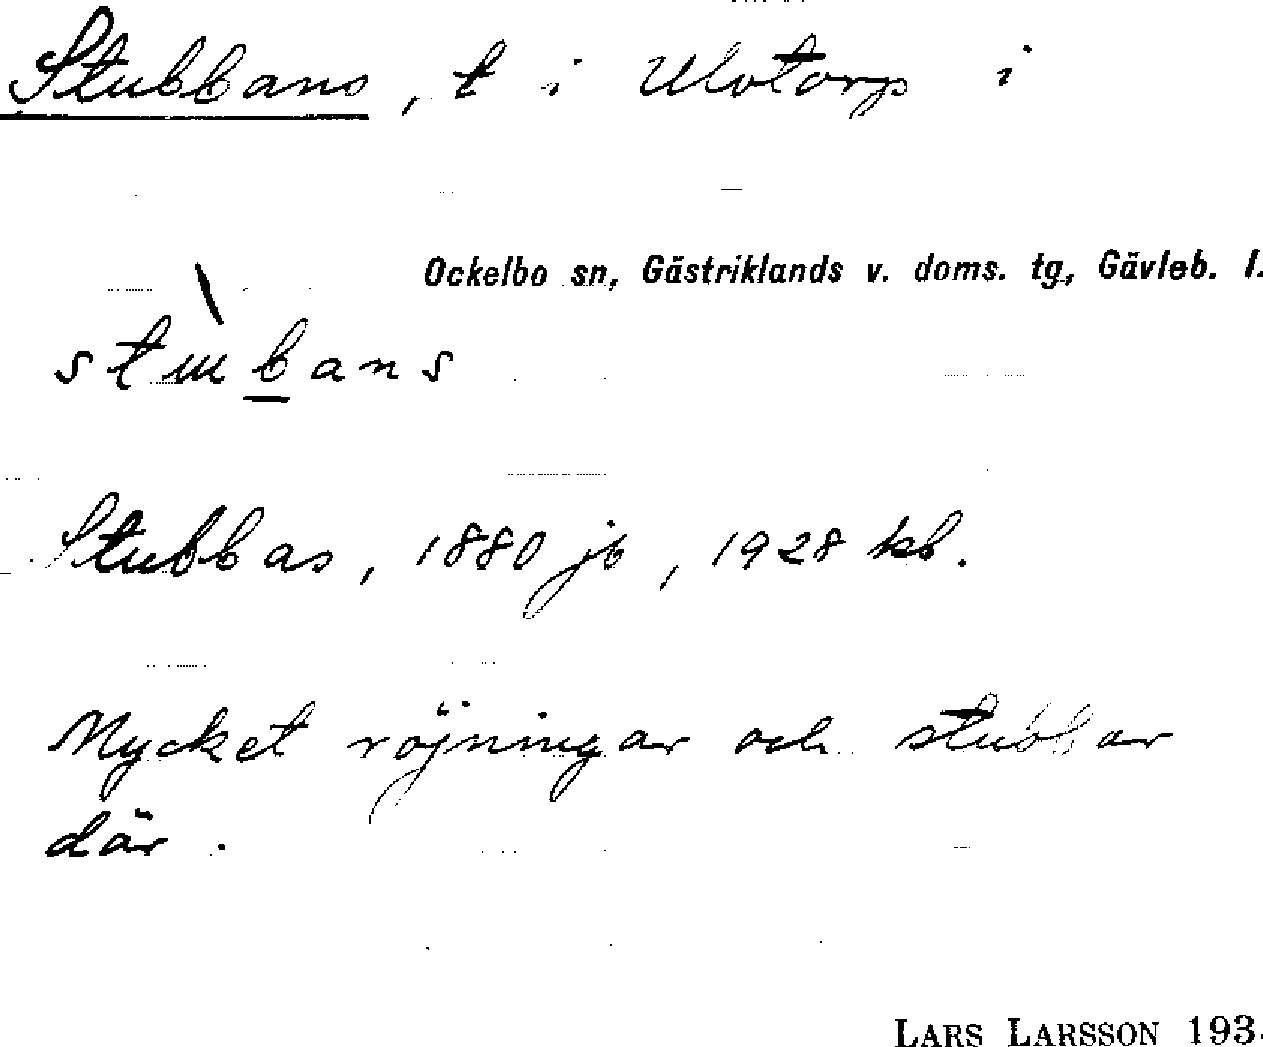 Stubbans, t i Ulvtorp i
Ockelbo sn, Gästriklands v. doms. tg., Gävleb. l.
Stubbas, 1880 jb, 1928 kb.
Mycket röjningar och stubbar
där.
LARS LARSSON 193